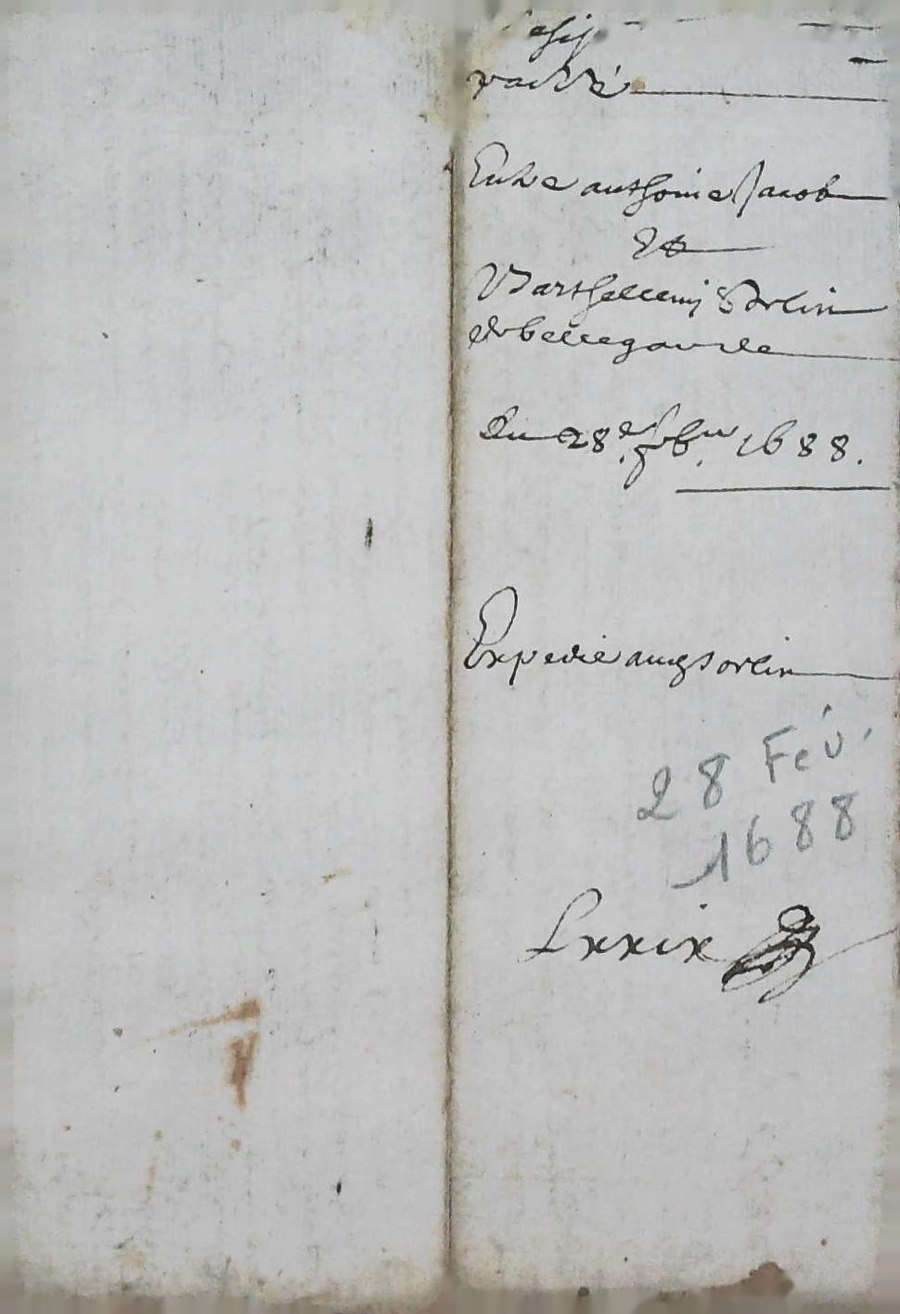 Entre anthoine Jacob
Et
Barthellemj Sorlin
de bellegarde
Du 28e feb. 1688.
Expedie aud Sorlin
28 Fév.
1688